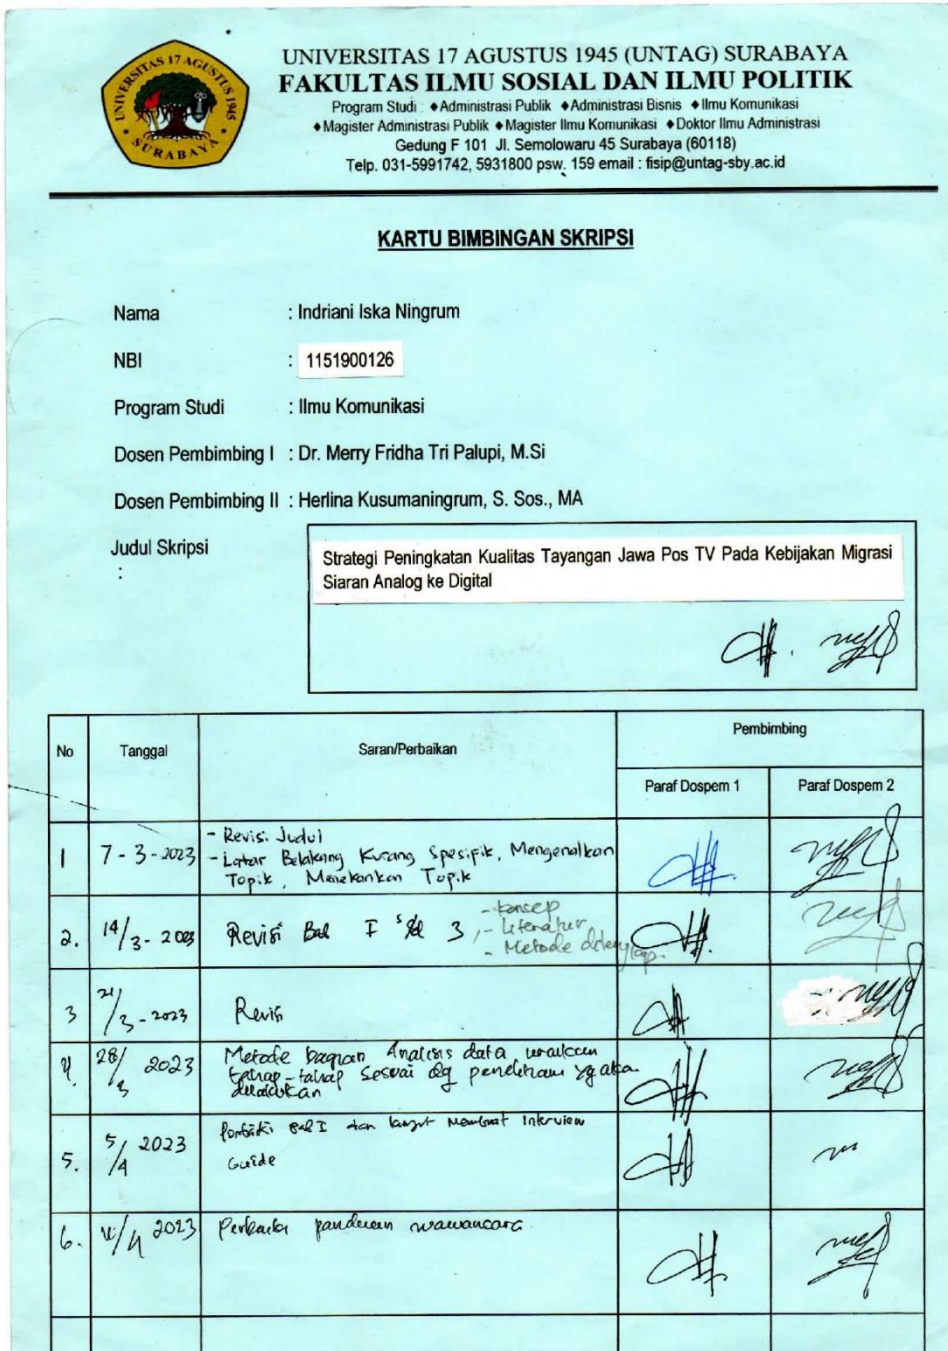 UNIVERSITAS 17 AGUSTUS 1945
SURABAYA
UNIVERSITAS 17 AGUSTUS 1945 (UNTAG) SURABAYA
FAKULTAS ILMU SOSIAL DAN ILMU POLITIK
Program Studi : ♦Administrasi Publik ♦Administrasi Bisnis ♦Ilmu Komunikasi
♦Magister Administrasi Publik ♦Magister Ilmu Komunikasi ♦Doktor Ilmu Administrasi
Gedung F 101 Jl. Semolowaru 45 Surabaya (60118)
Telp. 031-5991742, 5931800 psw. 159 email : fisip@untag-sby.ac.id
KARTU BIMBINGAN SKRIPSI
Nama : Indriani Iska Ningrum
NBI : 1151900126
Program Studi : Ilmu Komunikasi
Dosen Pembimbing I : Dr. Merry Fridha Tri Palupi, M.Si
Dosen Pembimbing II : Herlina Kusumaningrum, S. Sos., MA
Judul Skripsi :
Strategi Peningkatan Kualitas Tayangan Jawa Pos TV Pada Kebijakan Migrasi
Siaran Analog ke Digital
No Tanggal Saran/Perbaikan Pembimbing
Paraf Dospem 1 Paraf Dospem 2
1 7-3-2023 - Revisi Judul
- Latar Belakang Kurang Spesifik, Mengenalkan
Topik, Menekankan Topik
2. 14/3-2023 Revisi Bab I s/d 3, - konsep
- Literatur
- Metode dilengkapi.
3 21/3-2023 Revisi
4. 28/3 2023 Metode bagian Analisis data uraikan
tahap-tahap sesuai dg penelitian yg akan
dilakukan
5. 5/4 2023 Perbaiki Bab I dan lanjut Membuat Interview
Guide
6. /4 2023 Perbaiki panduan wawancara